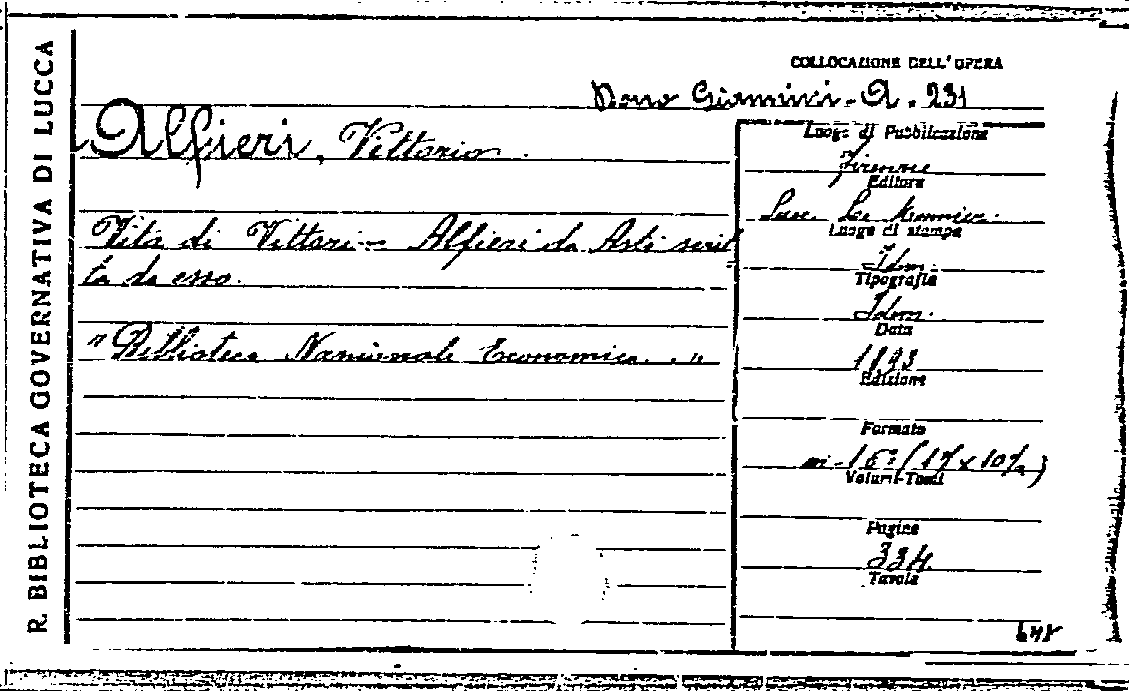 R. BIBLIOTECA GOVERNATIVA DI LUCCA
COLLOCAZIONE DELL'OPERA
Dono Giannini - A. 231
Alfieri, Vittorio
Vita di Vittorio Alfieri da Asti scrit
ta da esso.
"Biblioteca Nazionale Economica."
Luogo di Pubblicazione
Firenze
Editore
Succ. Le Monnier
Luogo di stampa
Idem.
Tipografia
Idem.
Data
1893
Edizione
Formato
in-16º (17 x 10½)
Volumi-Tomi
Pagine
334
Tavole